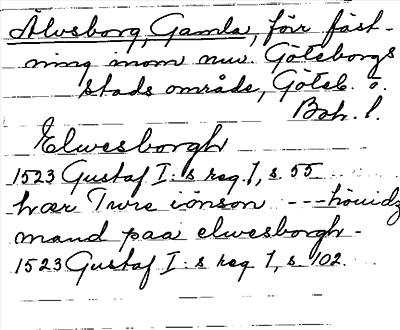 Älvsborg, Gamla, förr fäst-
ning inom nuv. Göteborgs
stads område, Göteb. o.
Boh. l.
Elwesborgh
1523 Gustaf I:s reg. 1, s. 55
hær Twre iönson --- höuidz
mand paa elwesborgh -
1523 Gustaf I:s reg 1, s 102.